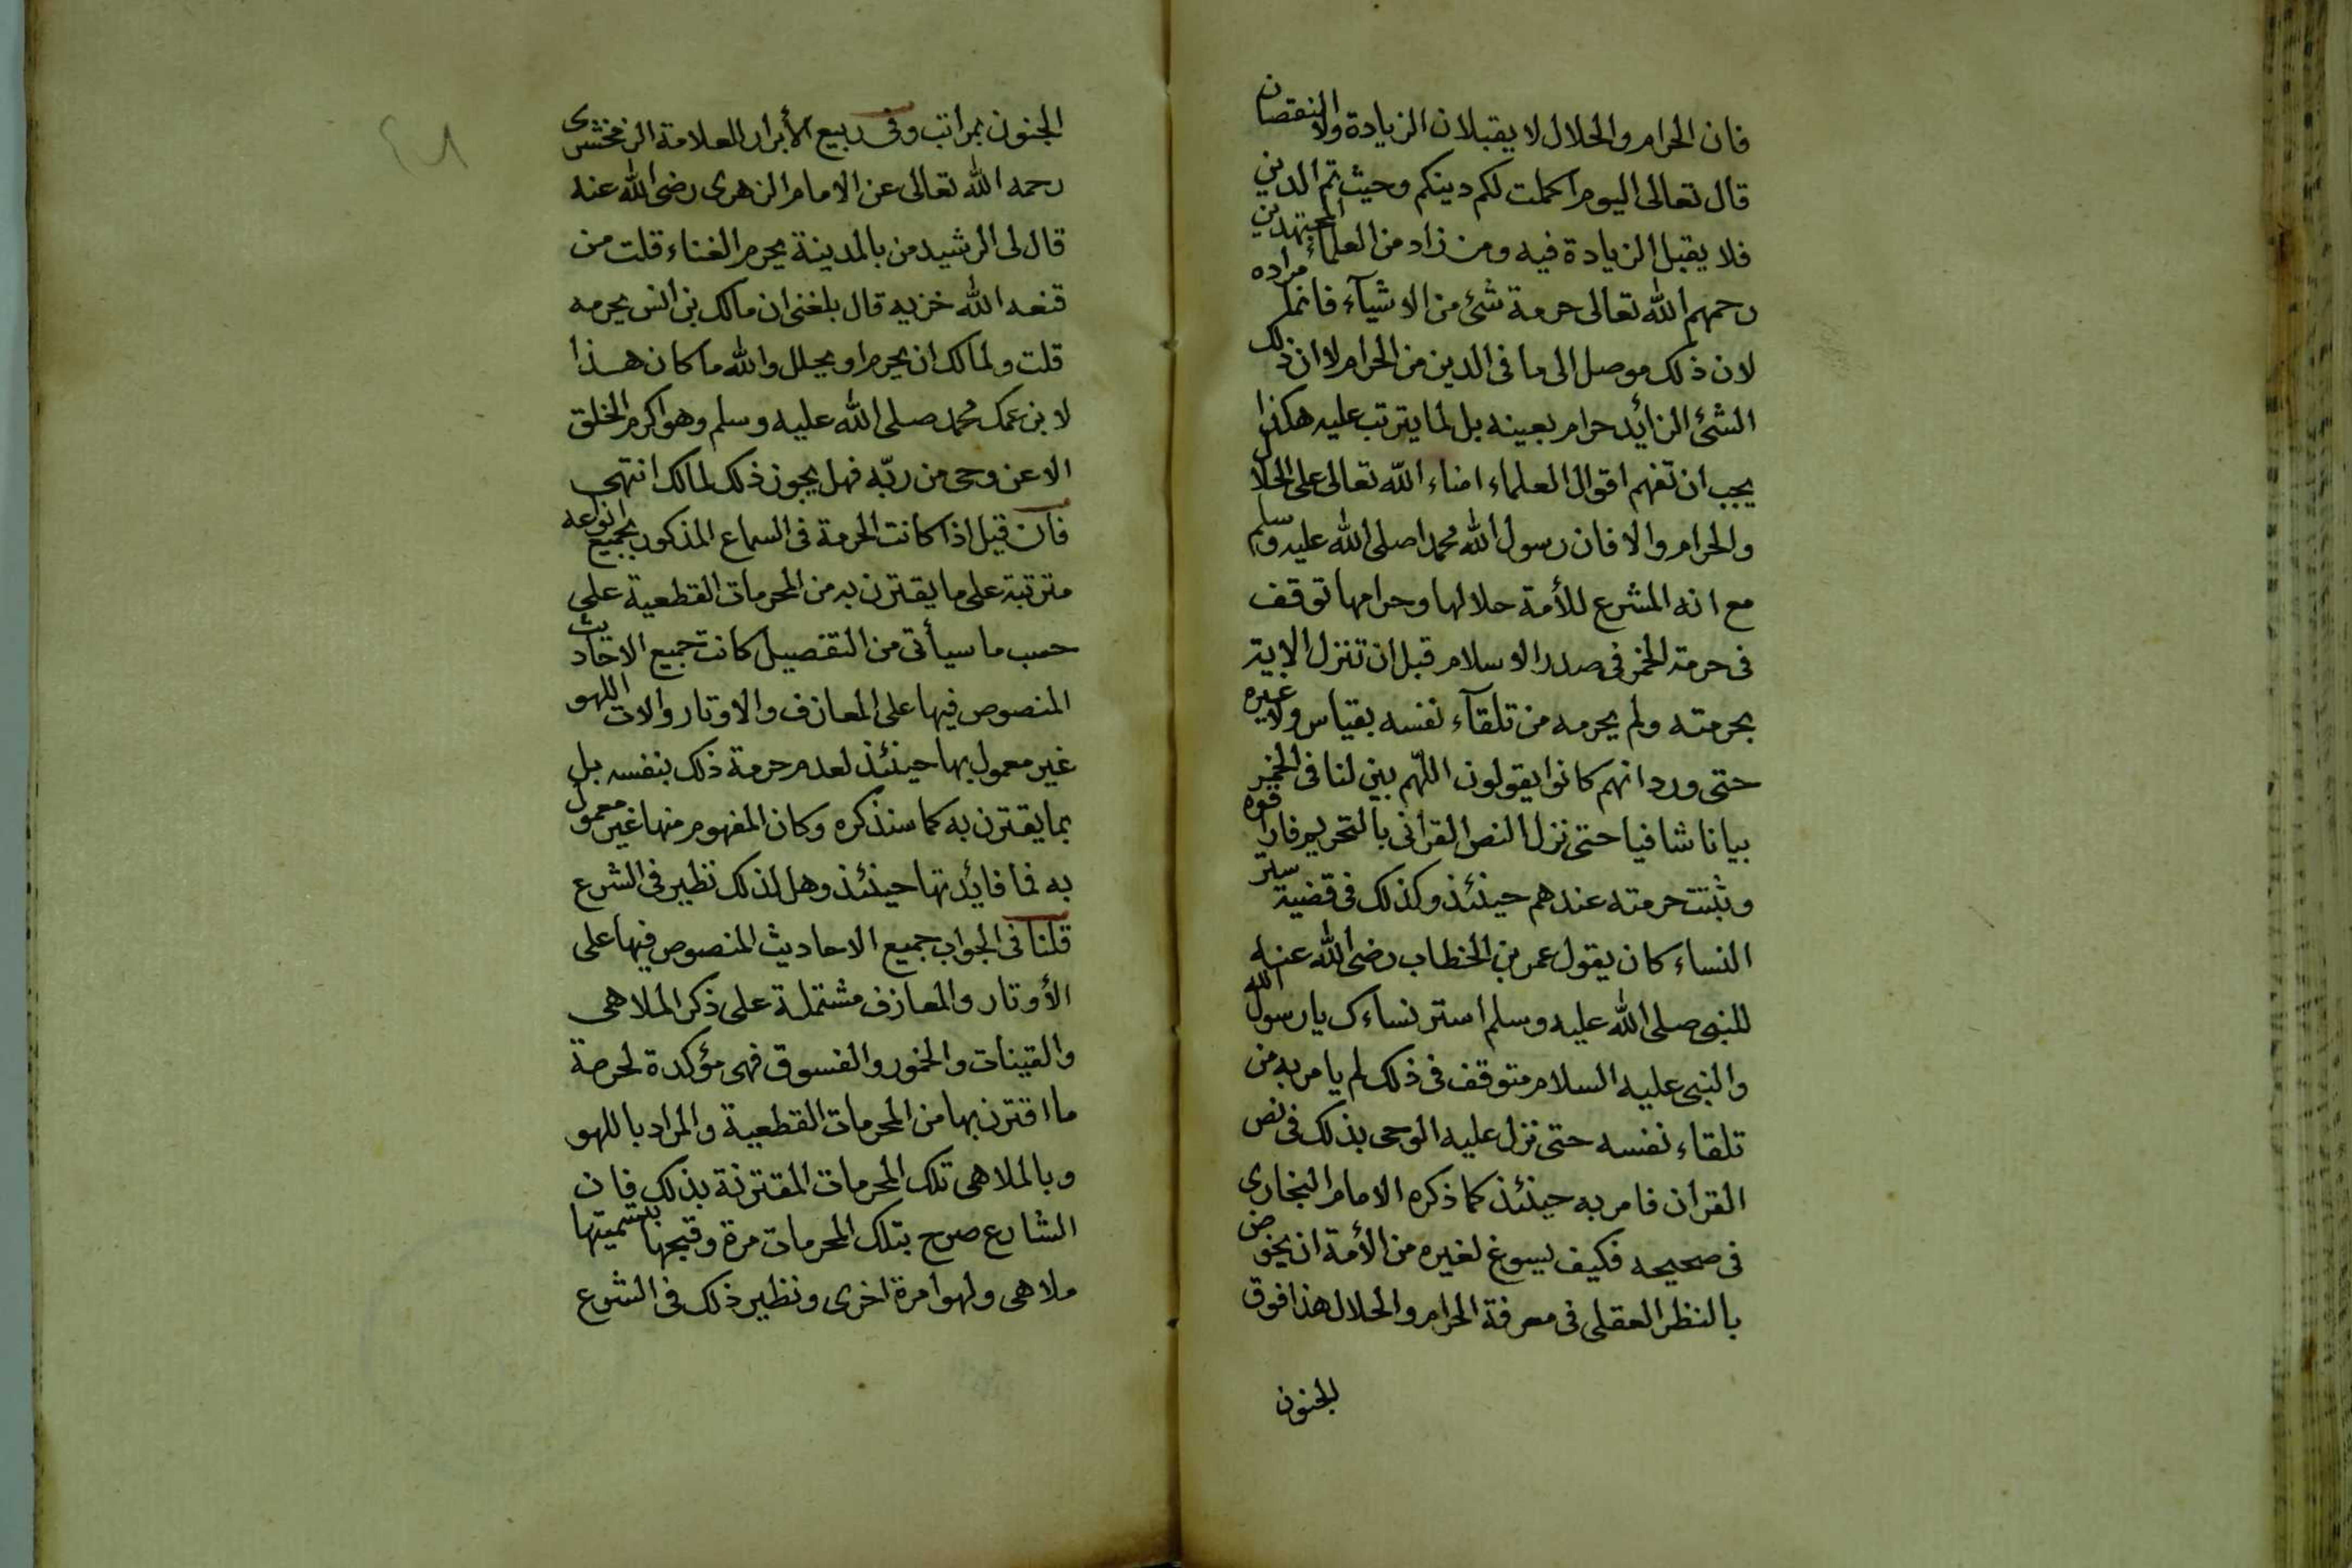 فان الحرام والحلال لا يقبلان الزيادة ولا النقصان
قال تعالى اليوم اكملت لكم دينكم وحيث تم الدين
فلا يقبل الزيادة فيه ومن زاد من العلماء المجتهدين
رحمهم الله تعالى حرمة شئ من الاشيآء فانما مراده
لان ذلك موصل الى ما فى الدين من الحرام لا ان ذلك
الشئ الزائد حرام بعينه بل لما يترتب عليه هكذا
يجب ان تفهم اقوال العلماء امناء الله تعالى على الحلال
والحرام والا فان رسول الله محمدا صلى الله عليه وسلم
مع انه المشرع للأمة حلالها وحرامها توقف
فى حرمة الخمر فى صدر الاسلام قبل ان تنزل الاية
بحرمته ولم يحرمه من تلقآء نفسه بقياس ولا غيره
حتى ورد انهم كانوا يقولون اللهم بين لنا فى الخمر
بيانا شافيا حتى نزل النص القرانى بالتحريم فاراقوه
وثبتت حرمته عندهم حينئذ وكذلك فى قضية ستر
النساء كان يقول عمر بن الخطاب رضى الله عنه
للنبى صلى الله عليه وسلم استر نساءك يا رسول الله
والنبى عليه السلام متوقف فى ذلك لم يامر به من
تلقاء نفسه حتى نزل عليه الوحى بذلك فى نص
القران فامر به حينئذ كما ذكره الامام البخارى
فى صحيحه فكيف يسوغ لغيره من الأمة ان يخوض
بالنظر العقلى فى معرفة الحرام والحلال هذا فوق
الجنون
الجنون بمراتب وفى ربيع الأبرار للعلامة الزمخشرى
رحمه الله تعالى عن الامام الزهرى رضى الله عنه
قال لى الرشيد من بالمدينة يحرم الغناء قلت من
قنعه الله خزيه قال بلغنى ان مالك بن انس يحرمه
قلت ولمالك ان يحرم او يحلل والله ما كان هذا
لابن عمك محمد صلى الله عليه وسلم وهو اكرم الخلق
الا عن وحى من ربّه فهل يجوز ذلك لمالك انتهى
فان قيل اذا كانت الحرمة فى السماع المذكور بجميع انواعه
مترتبة على ما يقترن به من المحرمات القطعية على
حسب ما سيأتى من التفصيل كانت جميع الاحاديث
المنصوص فيها على المعازف والاوتار والات اللهو
غير معمول بها حينئذ لعدم حرمة ذلك بنفسه بل
بما يقترن به كما سنذكره وكان المفهوم منها غير معمول
به فما فائدتها حينئذ وهل لذلك نظير فى الشرع
قلنا فى الجواب جميع الاحاديث المنصوص فيها على
الأوتار والمعازف مشتملة على ذكر الملاهى
والقينات والخمور والفسوق فهى مؤكدة لحرمة
ما اقترن بها من المحرمات القطعية والمراد باللهو
وبالملاهى تلك المحرمات المقترنة بذلك فان
الشارع صرح بتلك المحرمات مرة وقبحها بتسميتها
ملاهى ولهوا مرة اخرى ونظير ذلك فى الشرع